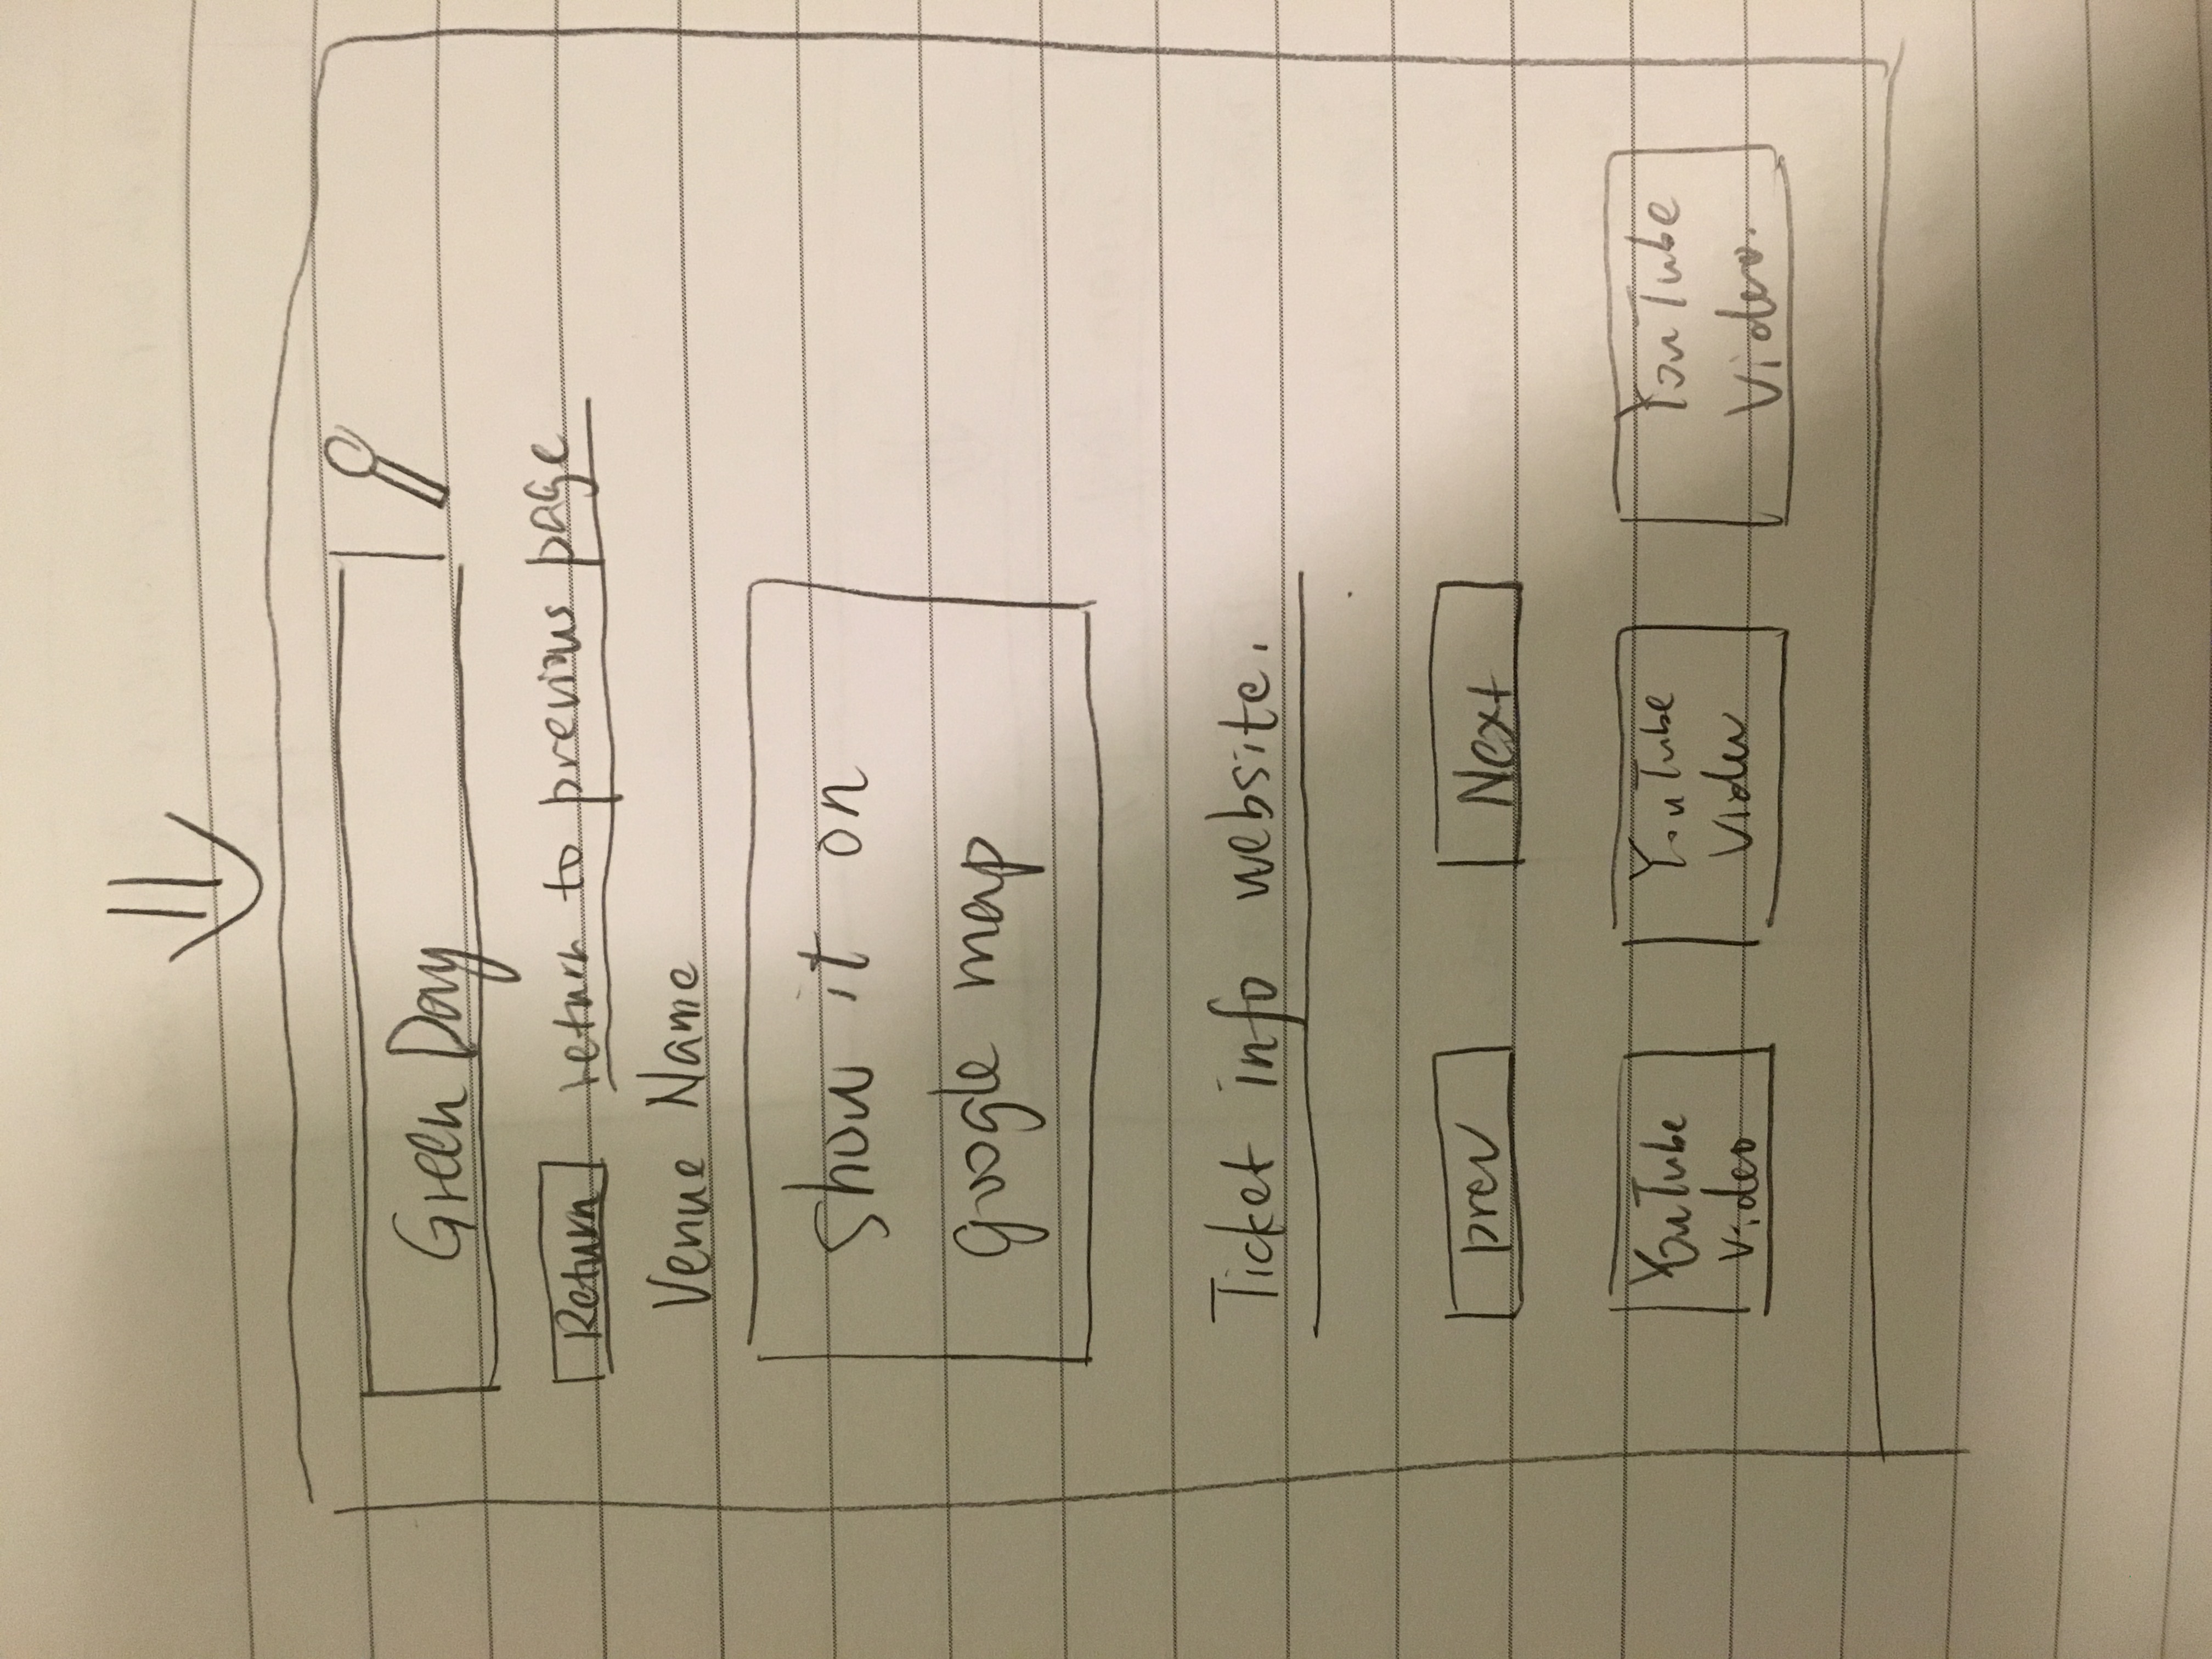 Green Day
Return return to previous page
Venue Name
Show it on
google map
Ticket info website.
prev Next
YouTube YouTube YouTube
Video Video Video.